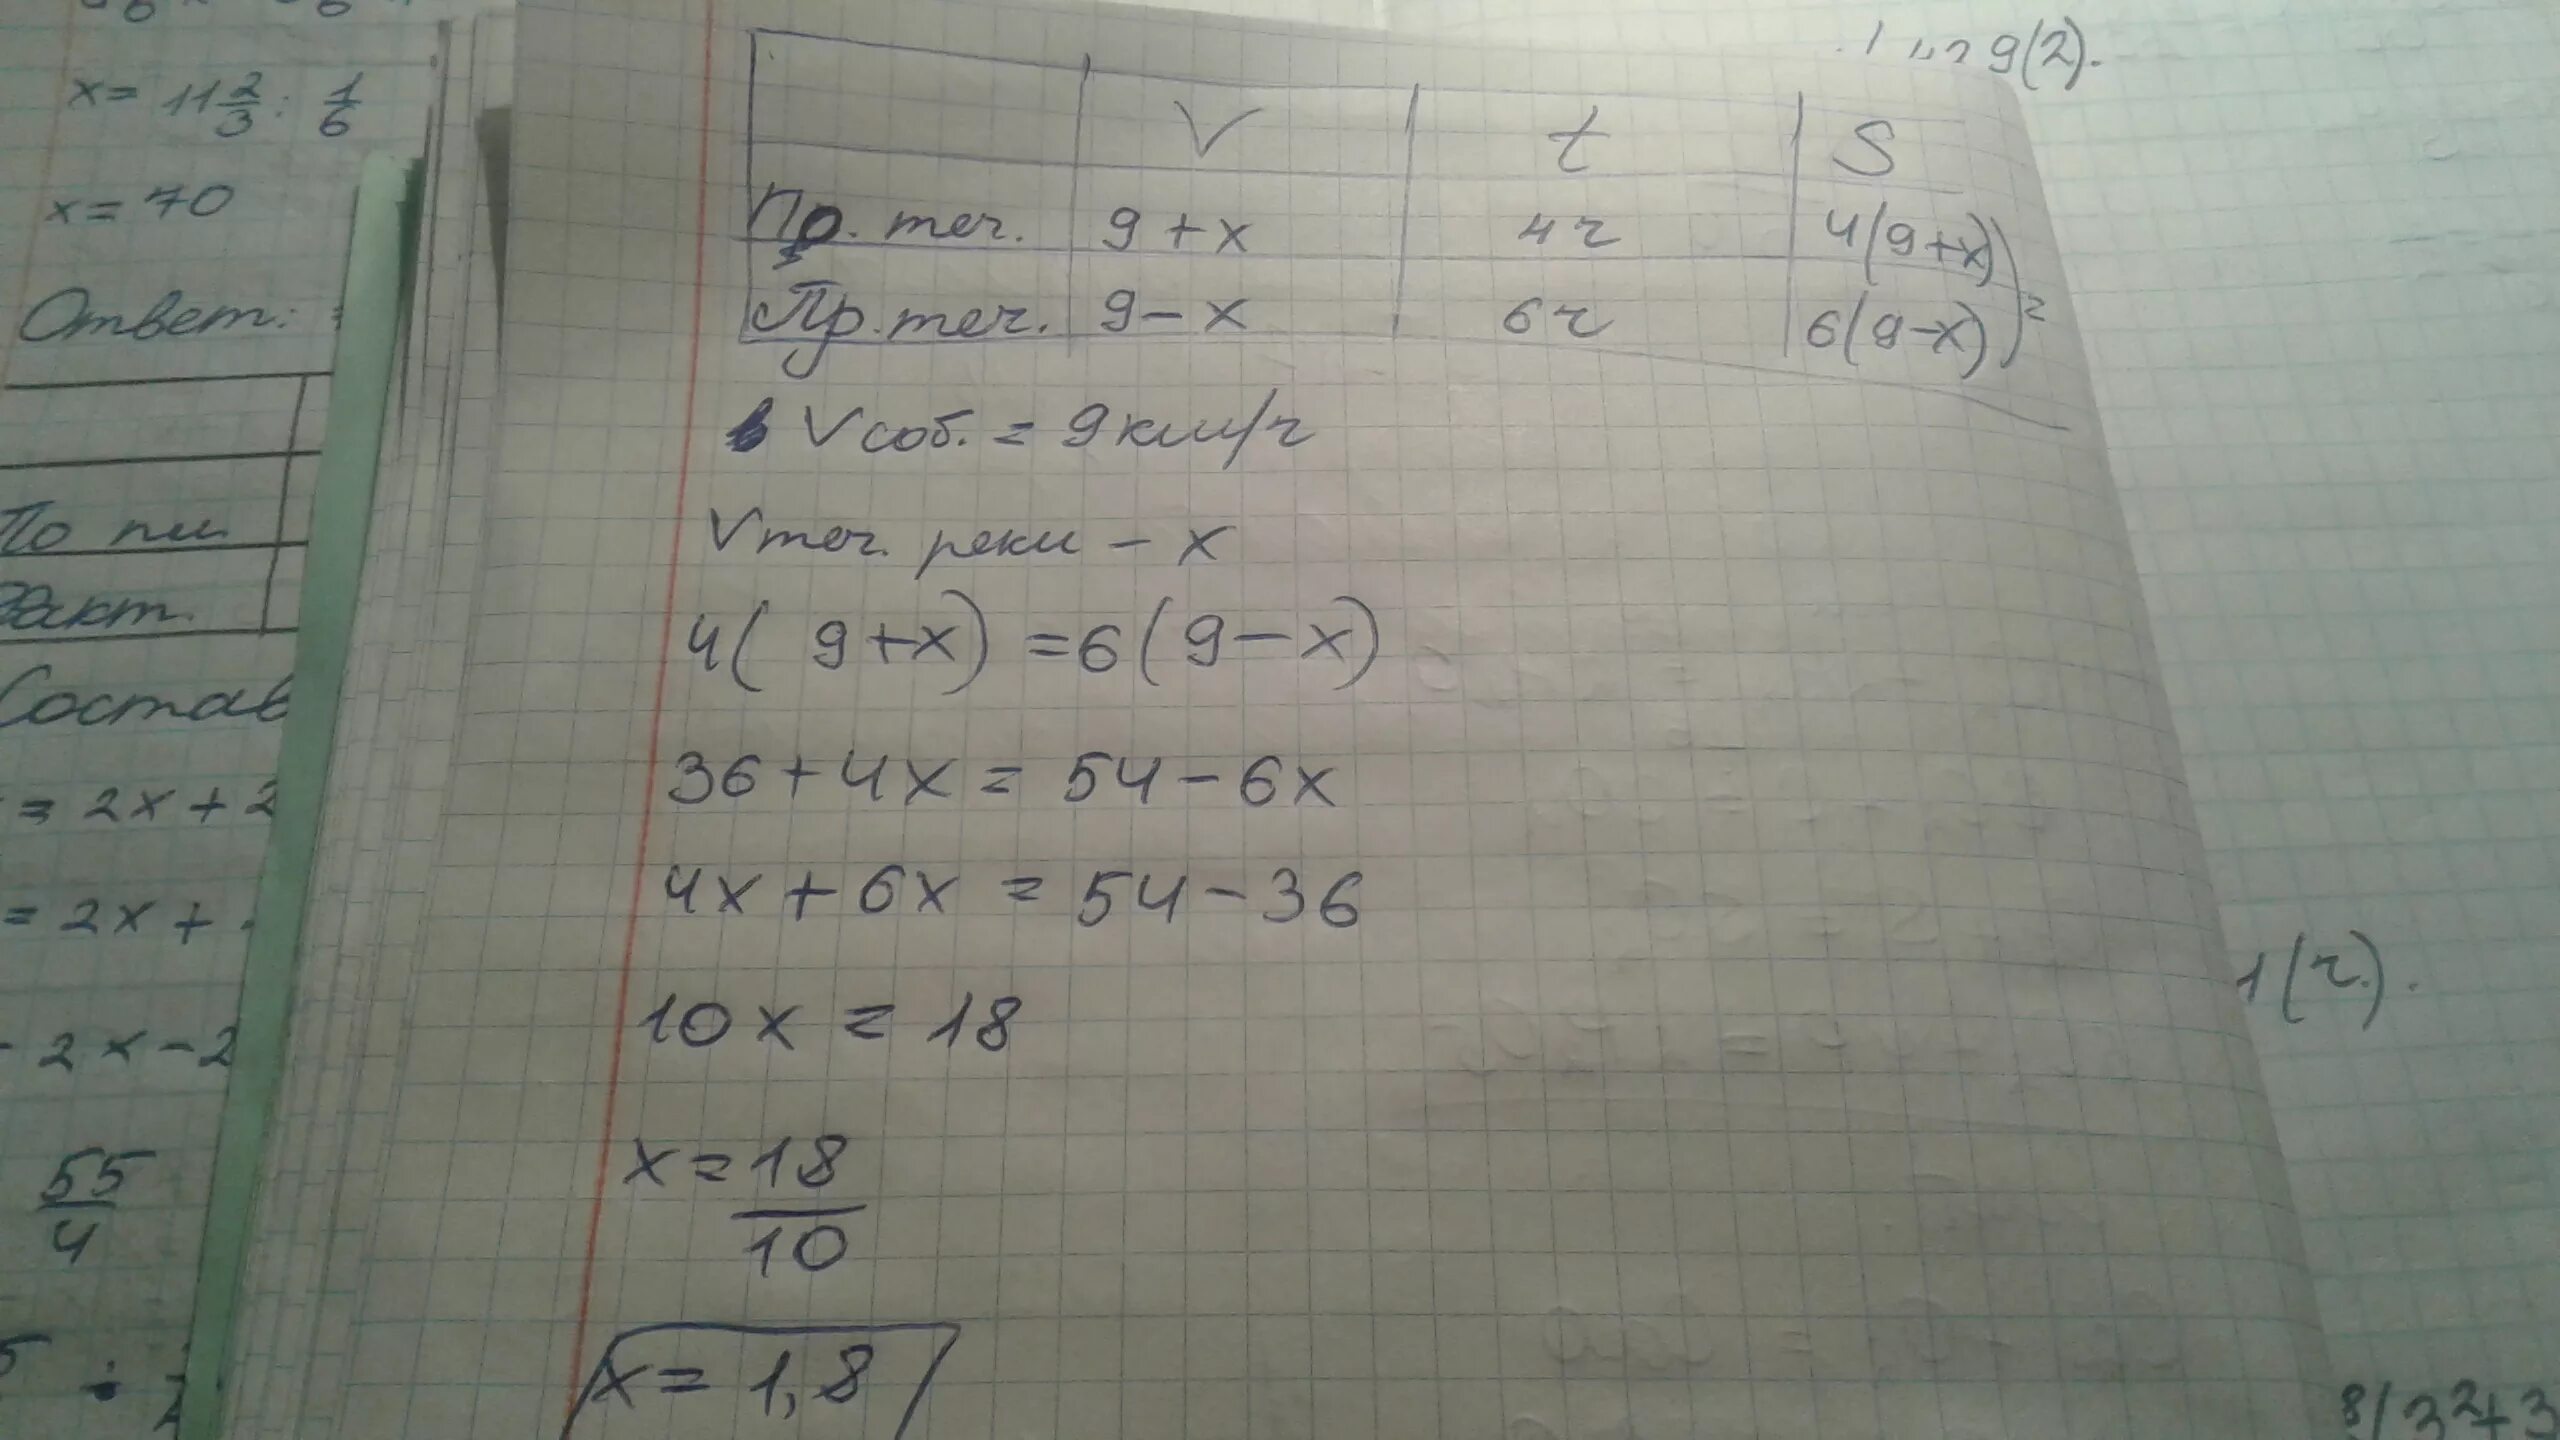 x = 11 2/3 : 1/6
x = 70
Ответ:
По пл.
Факт.
Состав
= 2x + 2
= 2x +
- 2x - 2
55/4
V t S
По. теч. 9 + x 4ч 4(9+x)
Пр. теч. 9 - x 6ч 6(9-x)
V соб. = 9 км/ч
V теч. реки - x
4( 9 + x) = 6(9 - x)
36 + 4x = 54 - 6x
4x + 6x = 54 - 36
10x = 18
x = 18/10
x = 1,8
9(2).
1(ч).
3²+3